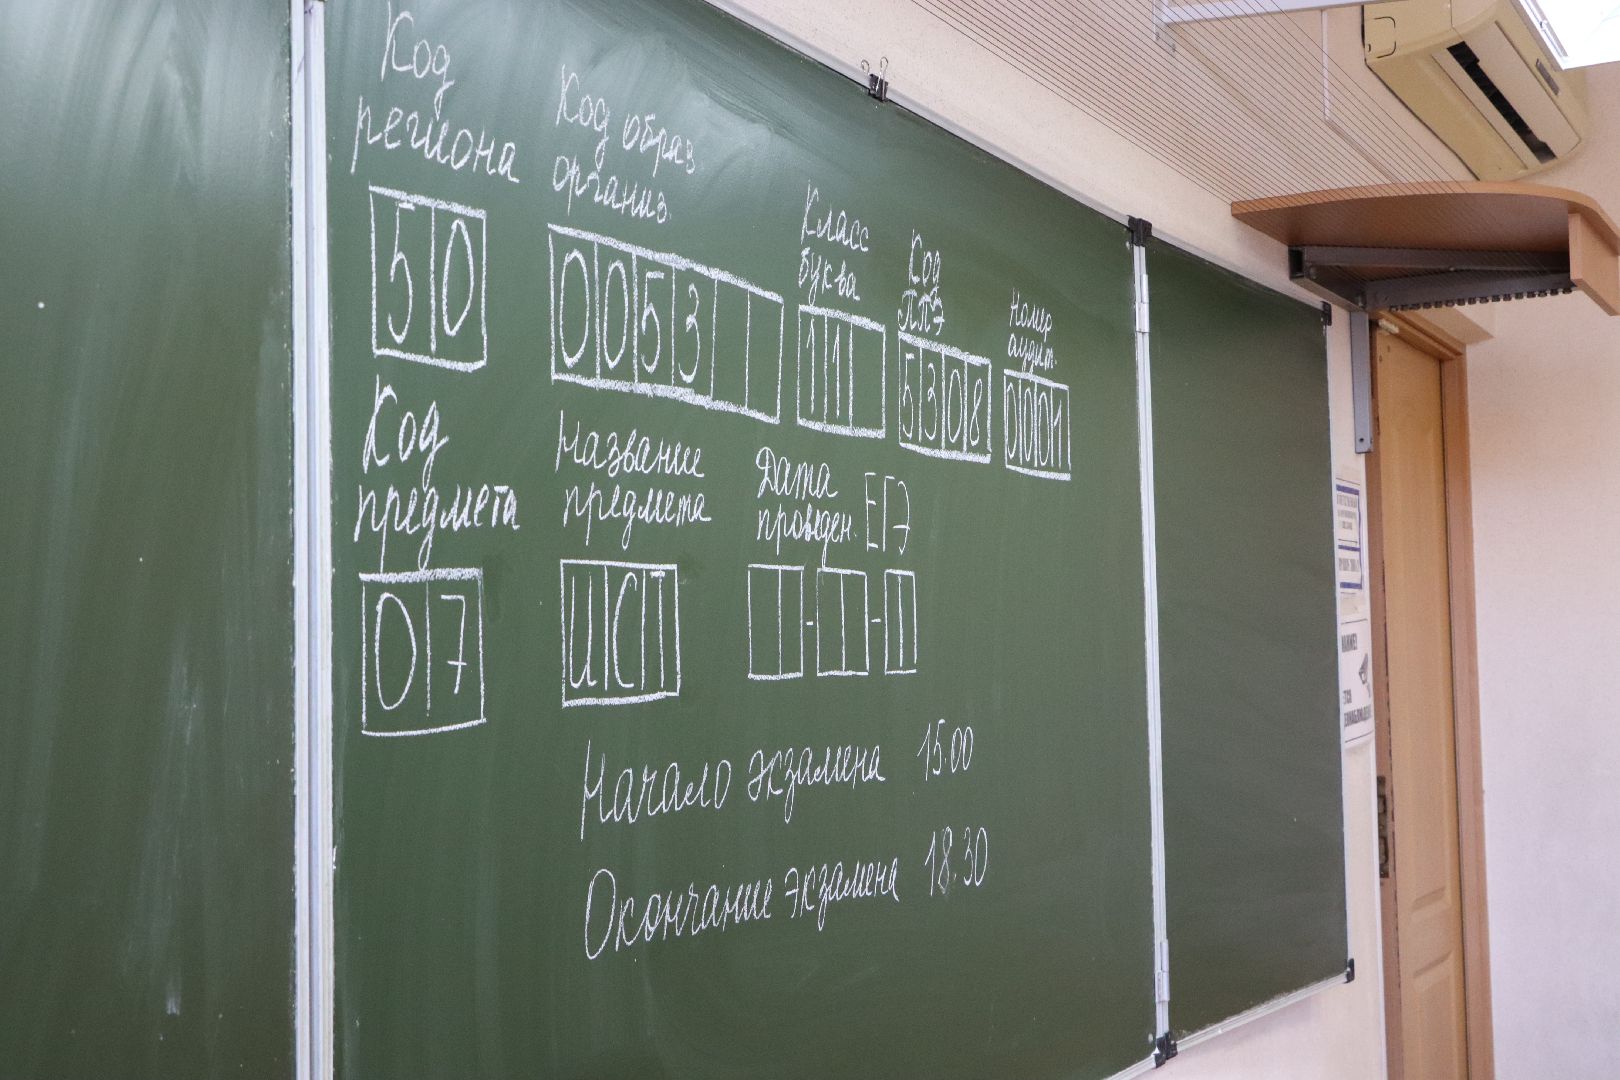 Код
региона
50
Код образ
организ.
0053
Класс
буква
11
Код
ППЭ
5308
Номер
аудит.
0001
Код
предмета
07
Название
предмета
ИСТ
Дата
проведен. ЕГЭ
- -
Начало экзамена 15.00
Окончание экзамена 18.30